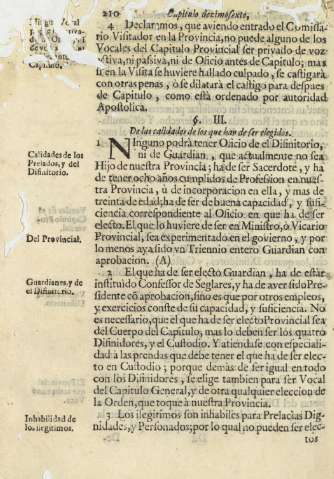 210
Capitulo dezimosexto,
4 Declaramos, que aviendo entrado el Comissa-
rio Visitador en la Provincia, no puede alguno de los
Vocales del Capitulo Provincial ser privado de voz
activa, ni passiva, ni de Oficio antes de Capitulo; mas
si en la Visita se huviere hallado culpado, se castigarà
con otras penas, ò se dilatarà el castigo para despues
de Capitulo, como està ordenado por autoridad
Apostolica.
§. III.
De las calidades de los que han de ser elegidos.
Calidades de los
Prelados, y del
Difinitorio.
1 Ninguno podrà tener Oficio el Difinitorio,
ni de Guardian, que actualmente no sea
Hijo de nuestra Provincia; ha de ser Sacerdote, y ha
de tener ocho años cumplidos de Profession en nues-
tra Provincia, ù de incorporacion en ella, y mas de
treinta de edad; ha de ser de buena capacidad, y sufi-
ciencia correspondiente al Oficio en que ha de ser
electo. El que lo huviere de ser en Ministro, ò Vicario
Del Provincial.
Provincial, sea experimentado en el govierno, y por
lo menos aya sido vn Triennio entero Guardian con
aprobacion. (A)
Guardianes, y de
el Difinitorio.
2 El que ha de ser electo Guardian, ha de estàr
instituìdo Confessor de Seglares, y ha de aver sido Presi-
dente cõ aprobacion, sino es que por otros empleos,
y exercicios conste de su capacidad, y suficiencia. No
es necessario, que el que ha de ser electo Provincial sea
del Cuerpo del Capitulo, mas lo deben ser los quatro
Difinidores, y el Custodio. Y atiendase con especiali-
dad à las prendas que debe tener el que ha de ser elec-
to en Custodio; porque demàs de ser igual en todo
con los Difinidores, se elige tambien para ser Vocal
del Capitulo General, y de otra qualquier eleccion de
la Orden, que toque à nuestra Provincia.
Inhabilidad de
los ilegitimos.
3 Los ilegitimos son inhabiles para Prelacias, Dig-
nidades, y Personados; por lo qual no pueden ser elec-
tos